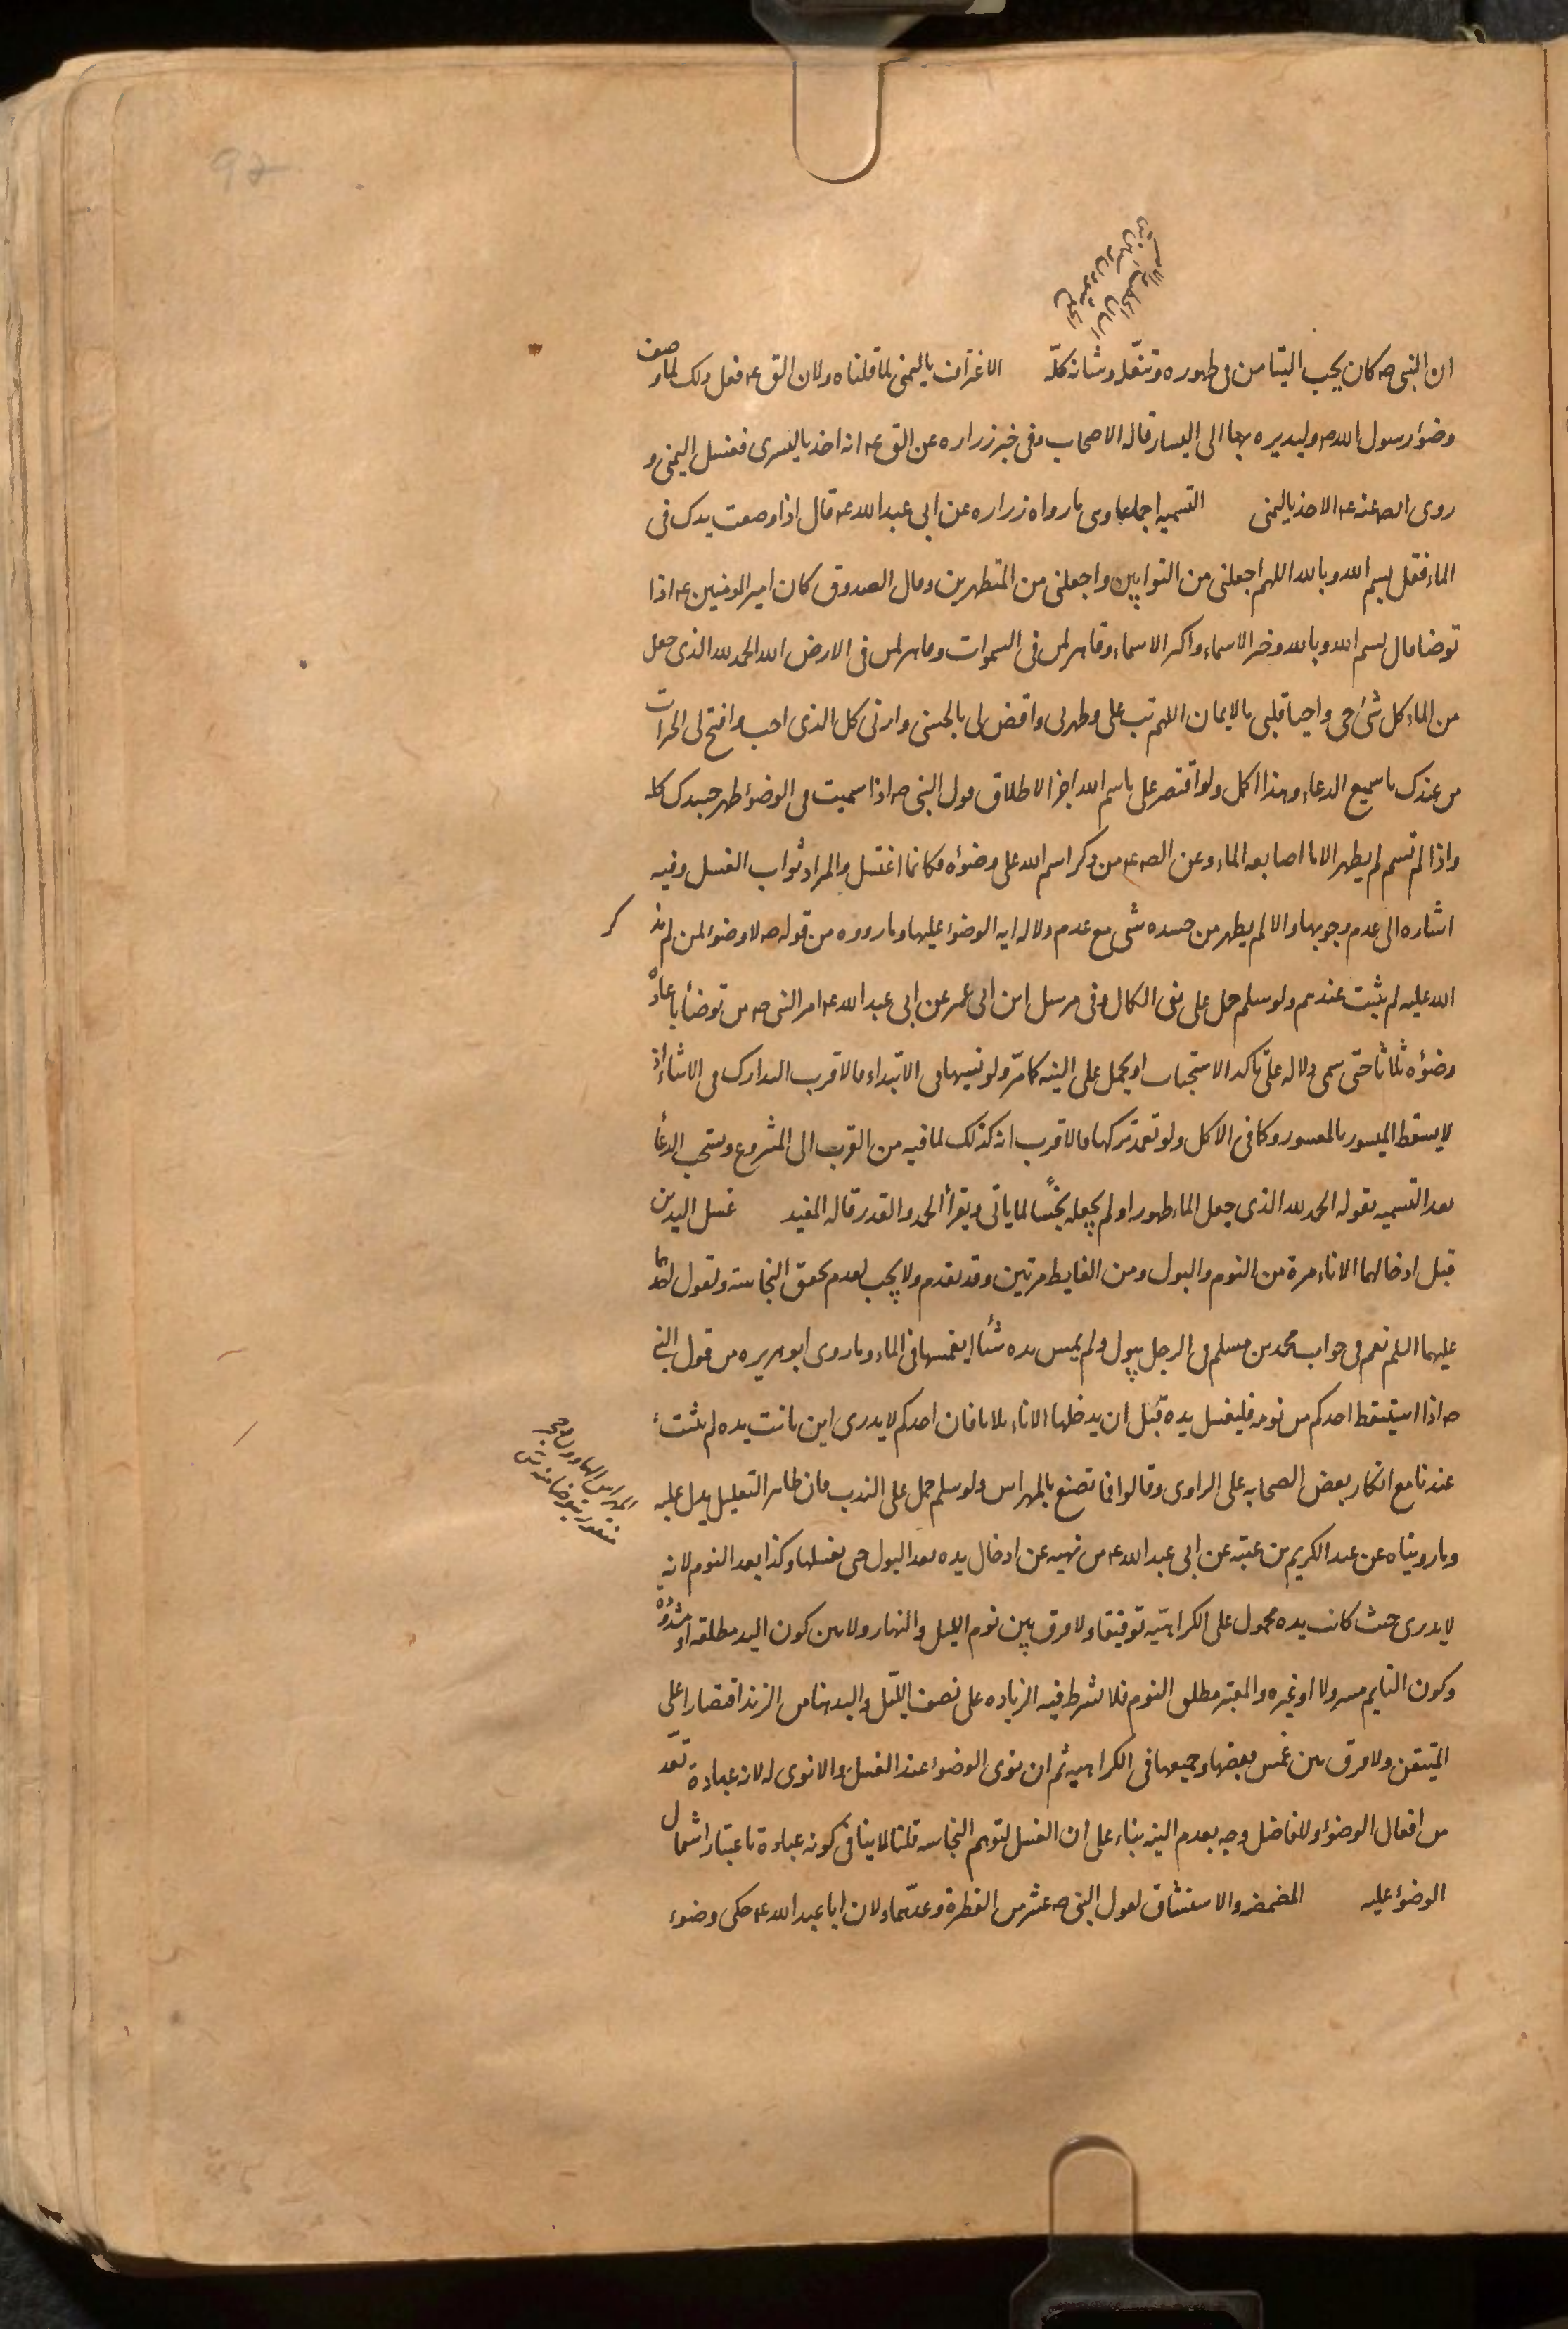 ان النبى صه كان يحب التيامن فى طهوره وتنعّله وشانه كلّه الاغتراف باليمنى لما قلناه ولان الق ع فعل ذلك لما وصف
وضوء رسول الله صه وليديره بها الى اليسار قاله الاصحاب وفى خبر زراره عن الق ع انه اخذ باليسرى فغسل اليمنى و
روى الصه عنه ع الاخذ باليمنى التسميه اجماعا وى ما رواه زراره عن ابى عبد الله ع قال اذا وضعت يدك فى
الماء فقل بسم الله وبالله اللهم اجعلنى من التوابين واجعلنى من المتطهرين وقال الصدوق كان امير المومنين ع اذا
توضا قال بسم الله وبالله وخير الاسماء واكبر الاسماء وقاهر لمن فى السموات وقاهر لمن فى الارض الله الحمد لله الذى جعل
من الماء كل شئ حى واحيا قلبى بالايمان اللهم تب على وطهرنى واقض لى بالحسنى وارنى كل الذى احب وافتح لى الخيرات
من عندك يا سميع الدعاء وهذا اكمل ولو اقتصر على باسم الله اجزا لاطلاق قول النبى صه اذا سميت فى الوضوء طهر جسدك كله
واذا لم تسم لم يطهر الا ما اصابه الماء وعن الصه ع من ذكر اسم الله على وضوئه فكانما اغتسل والمراد ثواب الغسل وفيه
اشاره الى عدم وجوبها والا لم يطهر من جسده شئ مع عدم دلاله ايه الوضوء عليها وما رووه من قوله صه لا وضوء لمن لم يذ كر
الله عليه لم يثبت عندهم ولو سلم حمل على نفى الكمال وفى مرسل ابن ابى عمير عن ابى عبد الله ع امر النبى صه من توضأ باعادة
وضوئه ثلاثا حتى سمى دلاله على تاكد الاستحباب او يحمل على النيه كما مرّ ولو نسيها فى الابتداء فالاقرب التدارك فى الاثناء اذ
لا يسقط الميسور بالمعسور وكما فى الاكل ولو تعمد تركها فالاقرب انه كذلك لما فيه من القرب الى المشروع ويستحب الدعا
بعد التسميه بقوله الحمد لله الذى جعل الماء طهورا ولم يجعله نجسًا لما ياتى ويقرأ الحمد والقدر قاله المفيد غسل اليدين
قبل ادخالهما الاناء مرة من النوم والبول ومن الغايط مرتين وقد تقدم ولا يجب لعدم تحقق النجاسة ولقول احدهما
عليهما السلم نعم فى جواب محمد بن مسلم فى الرجل يبول ولم يمس يده شئا ايغمسها فى الماء وما روى ابو هريره من قول النبى
صه اذا استيقظ احدكم من نومه فليغسل يده قبل ان يدخلها الاناء ثلاثا فان احدكم لا يدرى اين باتت يده لم يثبت
عندنا مع انكار بعض الصحابه على الراوى وقالوا فما تصنع بالمهراس ولو سلم حمل على الندب فان ظاهر التعليل يدل عليه
وما رويناه عن عبد الكريم بن عتبه عن ابى عبد الله ع من نهيه عن ادخال يده بعد البول حى يغسلها وكذا بعد النوم لانه
لا يدرى حيث كانت يده محمول على الكراهيّه توفيقا ولا فرق بين نوم الليل والنهار ولا بين كون اليد مطلقه او مشدودة
وكون النايم مسرولا او غيره والمعتبر مطلق النوم فلا يشترط فيه الزياده على نصف الليل واليد هنا من الزند اقتصارا على
المتيقن ولا فرق بين غمس بعضها وجميعها فى الكراهيه ثم ان نوى الوضوء عند الغسل والا نوى له لانه عبادة تعدّ
من افعال الوضوء وللفاضل وجه بعدم النيه بناء على ان الغسل لتوهم النجاسه قلنا لا ينافى كونه عبادة باعتبار اشتمال
الوضوء عليه المضمضه والاستنشاق لقول النبى صه عشر من الفطرة وعدّهما ولان ابا عبد الله ع حكى وضوء
المهراس الهاوون وحجر
منقور يتوضا منه